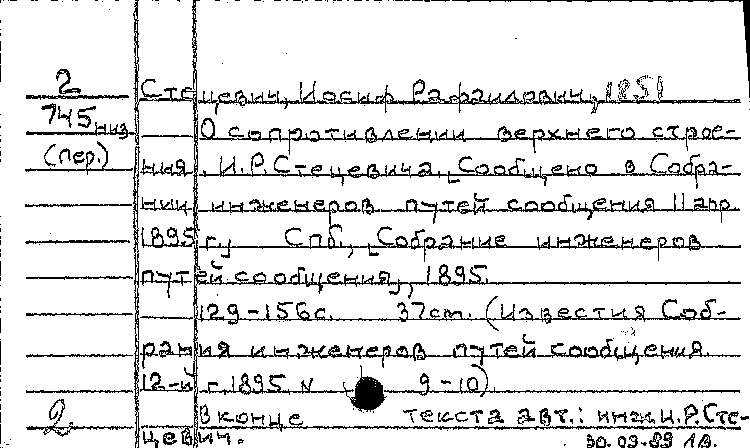 2 Стецевич, Иосиф Рафаилович, 1851
745 низ О сопротивлении верхнего строе-
(пер.) ния. И.Р.Стецевича. [Сообщено в Собра-
нии инженеров путей сообщения 11 апр.
1895 г.] Спб., [Собрание инженеров
путей сообщения], 1895.
129-156с. 37см. (Известия Соб-
рания инженеров путей сообщения.
12-й г. 1895, N 9-10).
2 В конце текста авт.: инж. И.Р.Сте-
цевич. 30.09.89